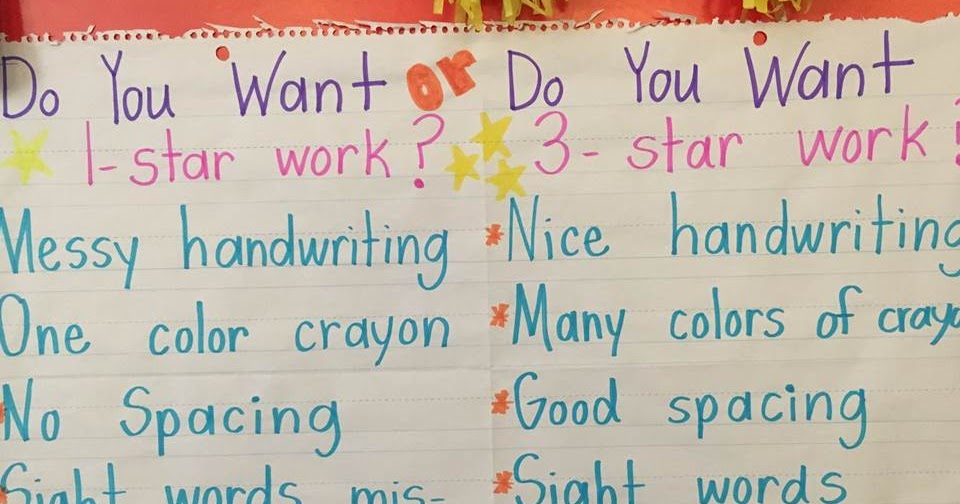 Do You Want or Do You Want
1-star work? 3-star work
Messy handwriting *Nice handwriting
One color crayon *Many colors of
No Spacing *Good spacing
Sight words mis- *Sight words